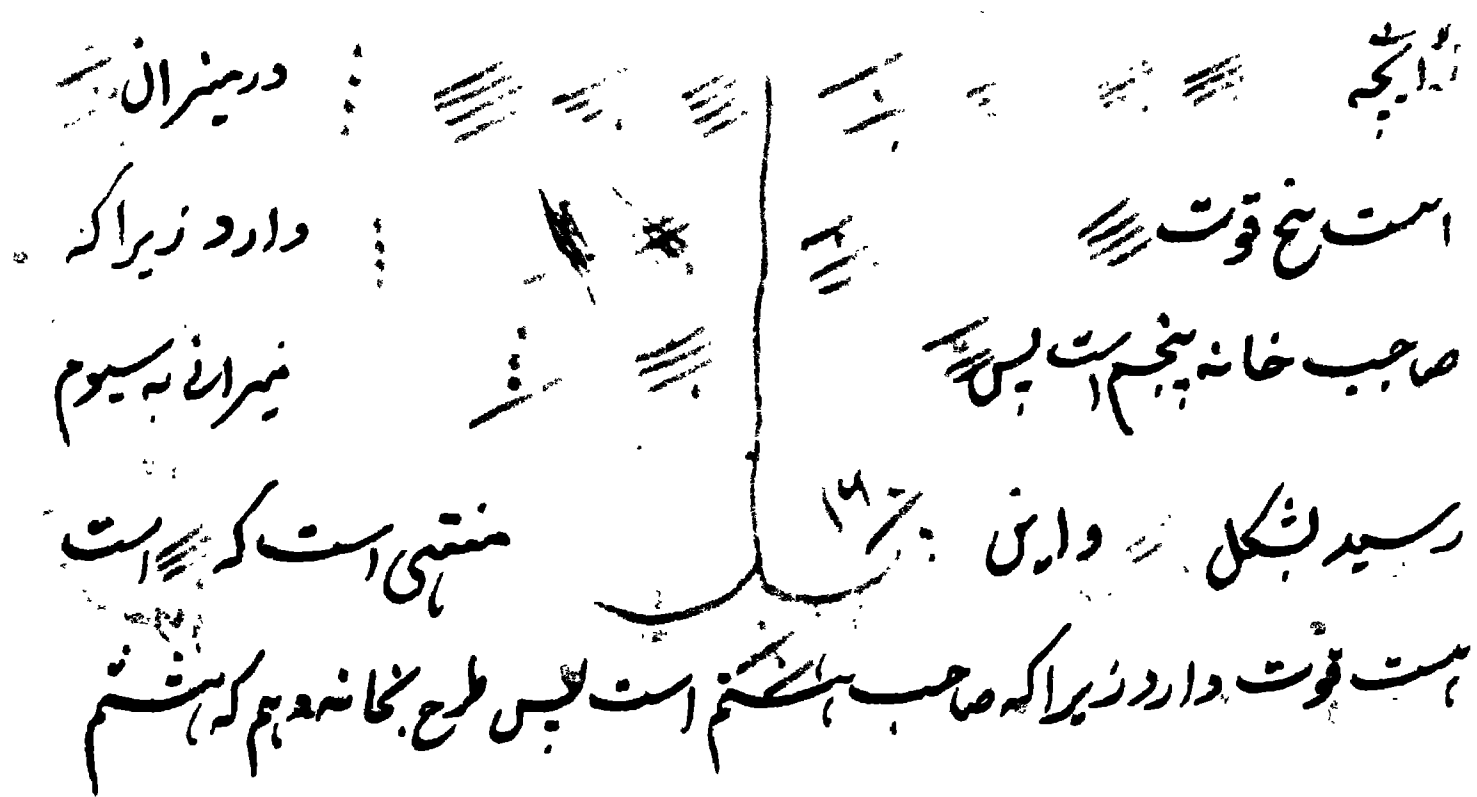 زایچه در میزان
است پنج قوت دارد زیراکه
صاحب خانه پنجم است پس میزانی به سیوم
رسید بشکل واین ۱۶ منتهی است که است
هست قوت دارد زیراکه صاحب هشتم است پس طرح بخانه دهم که هشتم